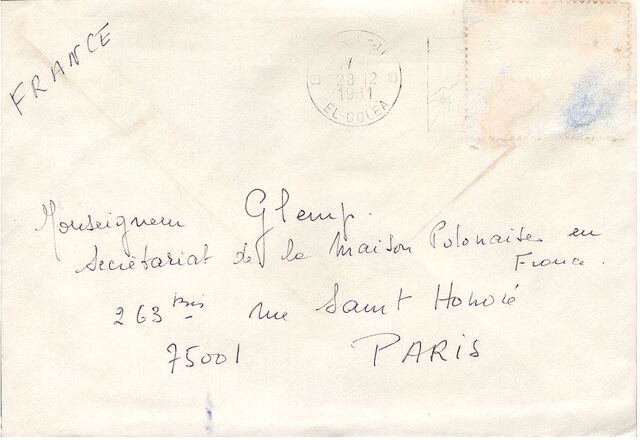 FRANCE
28-12
1981
EL-GOLEA
Monseigneur Glemp.
Secrétariat de la Maison Polonaise en
France.
263 bis rue Saint Honoré
75001 PARIS